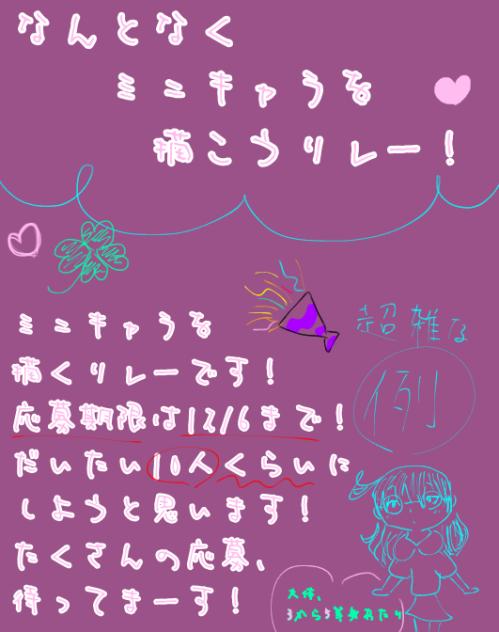 なんとなく
ミニキャラを
描こうリレー！
ミニキャラを
描くリレーです！
応募期限は12/6まで！
だいたい10人くらいに
しようと思います！
たくさんの応募、
待ってまーす！
超雑な
例
大体、
3から5等身あたり